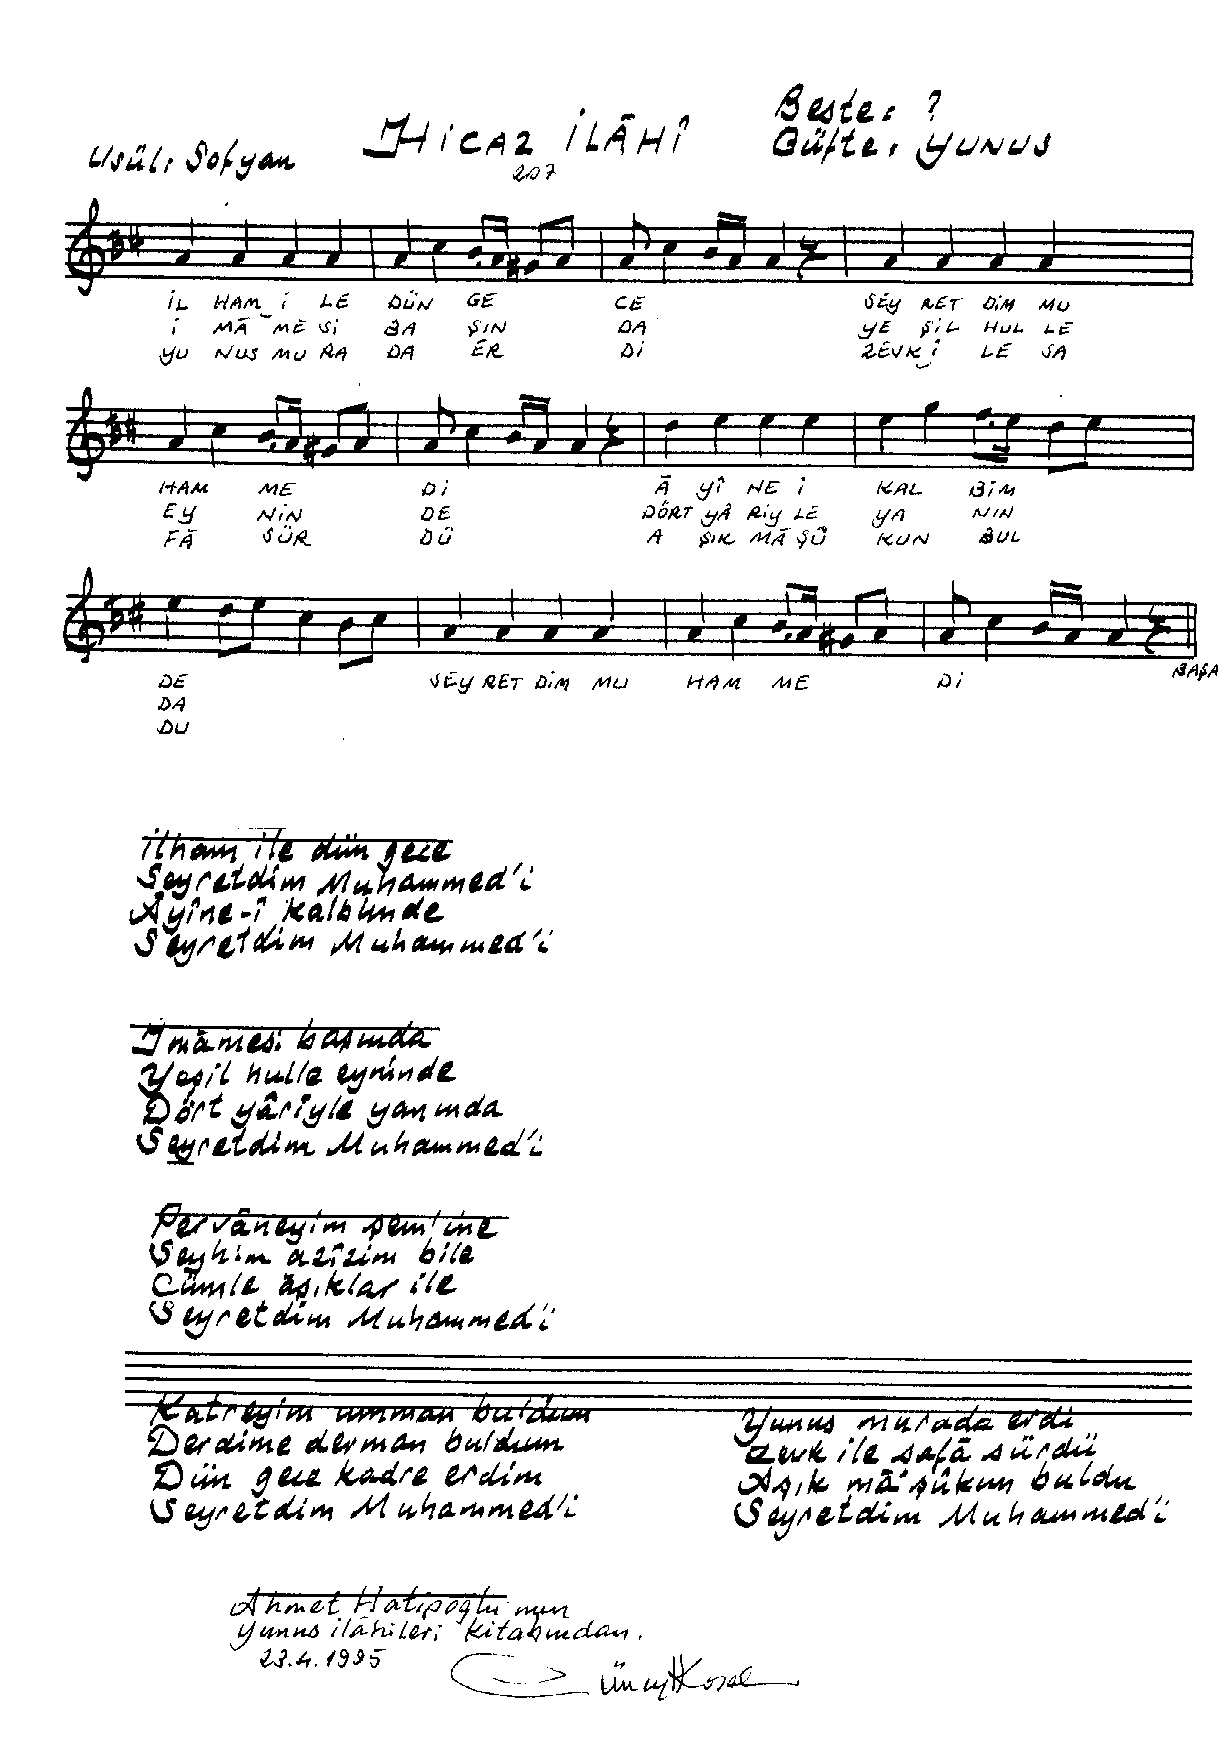 Usûl: Sofyan
HİCAZ İLÂHÎ
207
Beste: ?
Güfte: YUNUS
İL HAM İ LE DÜN GE CE SEY RET DİM MU
İ MÂ ME Sİ BA ŞIN DA YE ŞİL HUL LE
YU NUS MU RA DA ER Dİ ZEVK İ LE SA
HAM ME Dİ Â YÎ NE İ KAL BİM
EY NİN DE DÖRT YÂ RİY LE YA NIN
FÂ SÜR DÜ A ŞIK MÂ ŞÛ KUN BUL
DE SEY RET DİM MU HAM ME Dİ
DA
DU
BAŞA
İlham ile dün gece
Seyretdim Muhammed'i
Âyîne-î kalbimde
Seyretdim Muhammed'i
İmâmesi başında
Yeşil hulle eyninde
Dört yâriyle yanında
Seyretdim Muhammed'i
Pervâneyim şem'ine
Şeyhim azîzim bile
Cümle âşıklar ile
Seyretdim Muhammed'i
Katreyim umman buldum
Derdime derman buldum
Dün gece kadre erdim
Seyretdim Muhammed'i
Yunus murada erdi
Zevk ile safâ sürdü
Aşık mâ'şûkun buldu
Seyretdim Muhammed'i
Ahmet Hatipoğlu'nun
Yunus ilâhileri kitabından.
23.4.1995
Cüneyt Kosal